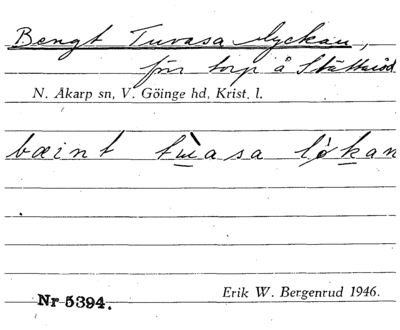 Bengt Tuvasa lyckan,
förr torp å
N. Åkarp sn, V. Göinge hd, Krist. l.
bæint tuwasa lykan
Nr 5394.
Erik W. Bergenrud 1946.